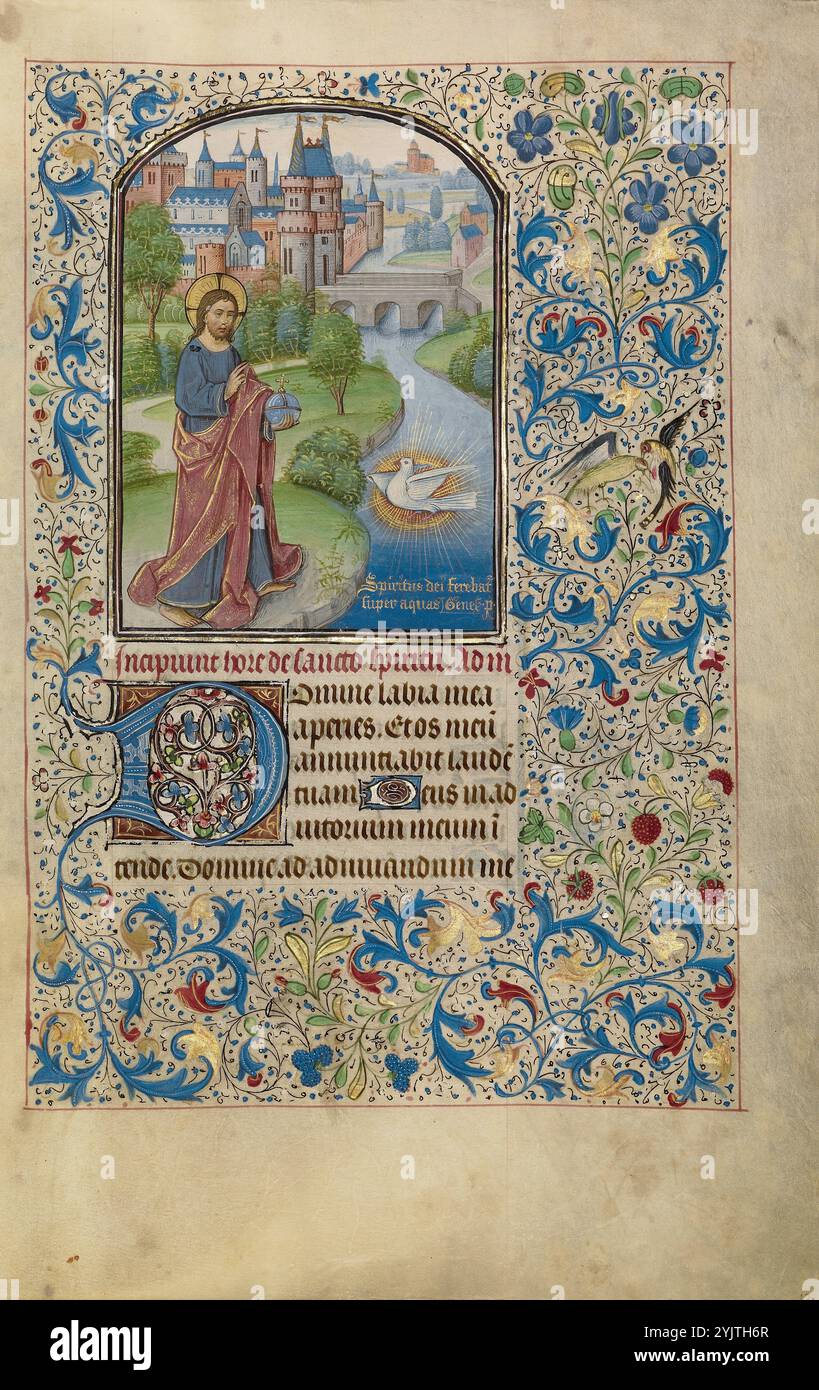 Spiritus dei ferebat᷑
super aquas Genes̄ p̊
Incipiunt hore de sancto spiritu. Ad m
Domine labia mea
aperies. Et os meū
annunciabit laudē
tuam Deus in ad
iutorium meum ī
tende. Domine ad adiuuandum me
alamy
Image ID: 2YJTH6R
www.alamy.com